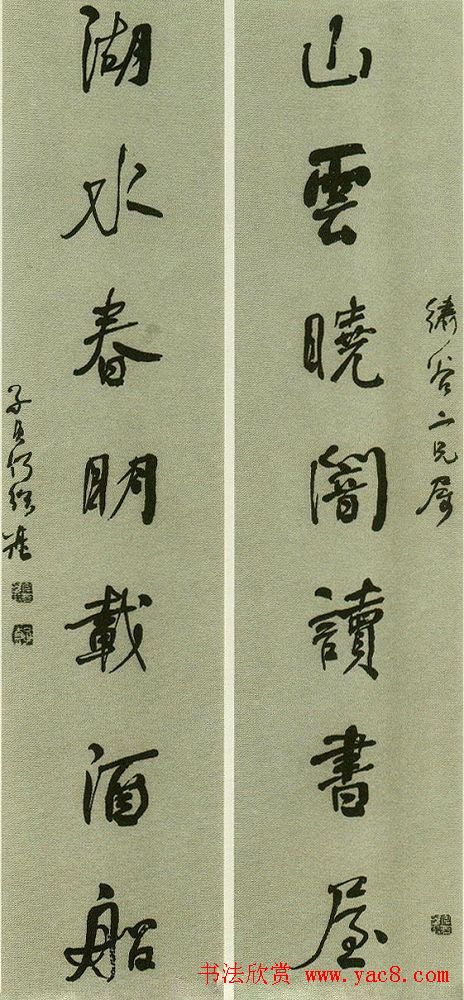 繡谷二兄屬
山雲曉闇讀書屋
湖水春明載酒船
子貞何紹基
书法欣赏 www.yac8.com